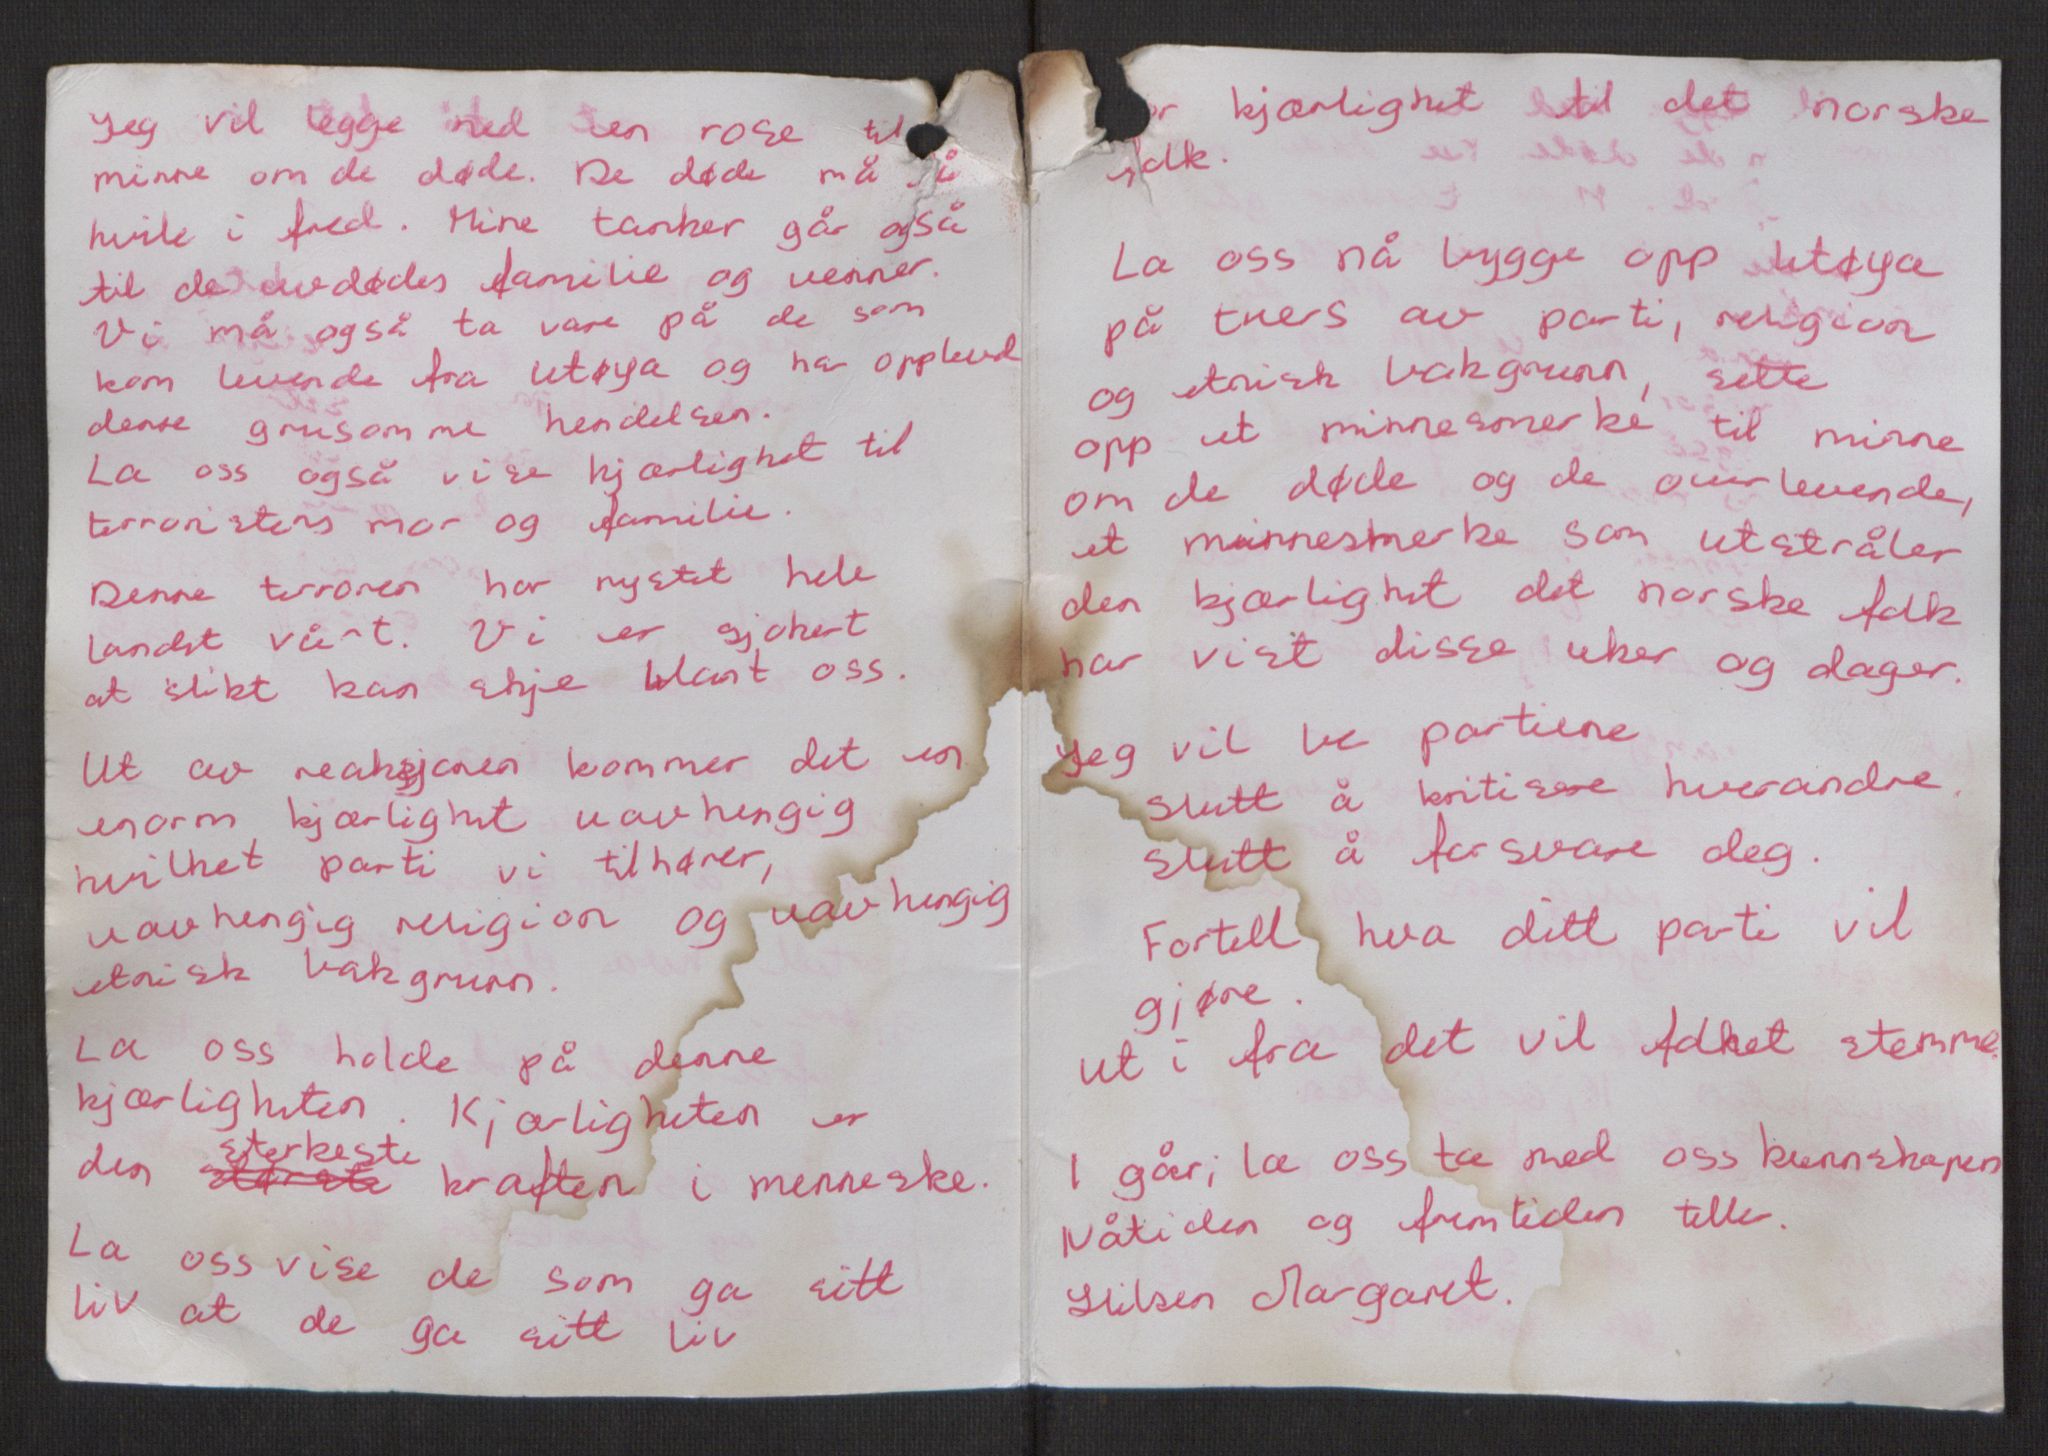 Jeg vil legge ned en rose til
minne om de døde. De døde må få
hvile i fred. Mine tanker går også
til de avdødes familie og venner.
Vi må også ta vare på de som
kom levende fra Utøya og har opplevd
denne grusomme hendelsen.
La oss også vise kjærlighet til
terroristens mor og familie.
Denne terroren har rystet hele
landet vårt. Vi er sjokert
at slikt kan skje blant oss.
Ut av reaksjonen kommer det en
enorm kjærlighet uavhengig
hvilket parti vi tilhører,
uavhengig religion og uavhengig
etnisk bakgrunn.
La oss holde på denne
kjærligheten. Kjærligheten er
den sterkeste største kraften i menneske.
La oss vise de som ga sitt
liv at de ga sitt liv
for kjærlighet til det norske
folk.
La oss nå bygge opp Utøya
på tvers av parti, religion
og etnisk bakgrunn, sette
opp et minnesmerke til minne
om de døde og de overlevende,
et minnesmerke som utstråler
den kjærlighet det norske folk
har vist disse uker og dager.
Jeg vil be partiene
slutt å kritisere hverandre.
slutt å forsvare deg.
Fortell hva ditt parti vil
gjøre.
Ut i fra det vil folket stemme.
I går; la oss ta med oss kunnskapen
Nåtiden og fremtiden teller.
Hilsen Margaret.